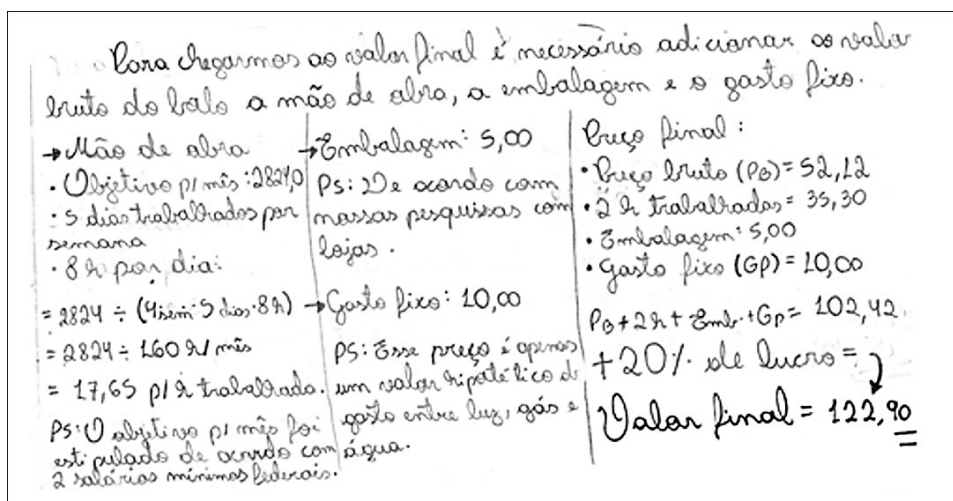 Para chegarmos ao valor final é necessário adicionar ao valor
bruto do bolo a mão de obra, a embalagem e o gasto fixo.
→ Mão de obra
• Objetivo p/ mês: 2824,0
• 5 dias trabalhados por
semana
• 8h por dia:
= 2824 ÷ (4sem· 5 dias· 8h)
= 2824 ÷ 160 h/ mês
= 17,65 p/ h trabalhada.
PS: O objetivo p/ mês foi
estipulado de acordo com
2 salários mínimos federais.
→ Embalagem: 5,00
PS: De acordo com
nossas pesquisas com
lojas.
→ Gasto fixo: 10,00
PS: Esse preço é apenas
um valor hipotético de
gasto entre luz, gás e
água.
Preço final:
• Preço bruto (PB) = 52,12
• 2 h trabalhadas = 35,30
• Embalagem: 5,00
• Gasto fixo (GP) = 10,00
PB + 2h + Emb. + Gp = 102,42
+ 20% de lucro =
Valor final = 122,90